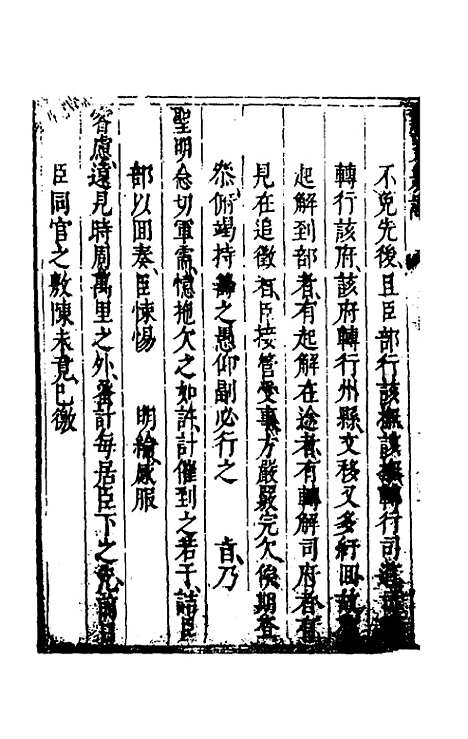 不免先後、且臣部行該撫、該撫轉行司道
轉行該府、該府轉行州縣、文移又多紆回、故
起解到部者、有起解在途者、有轉解司府者、有
見在追徵者、臣接管受事、方嚴覈完欠、俟期
叅、俯竭持籌之愚、仰副必行之 旨、乃
聖明念切軍需、憶拖欠之如許、計催到之若干、詰臣
部以回奏、臣悚惕 明綸、感服
睿慮、遠見時周萬里之外、籌計每居臣下之先、前
臣同官之敷陳未竟、已徹